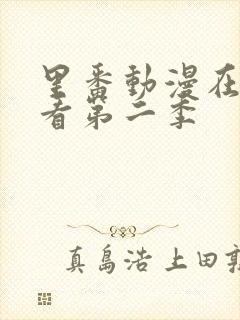 里番動漫在
看第二季
真島浩 上田敦